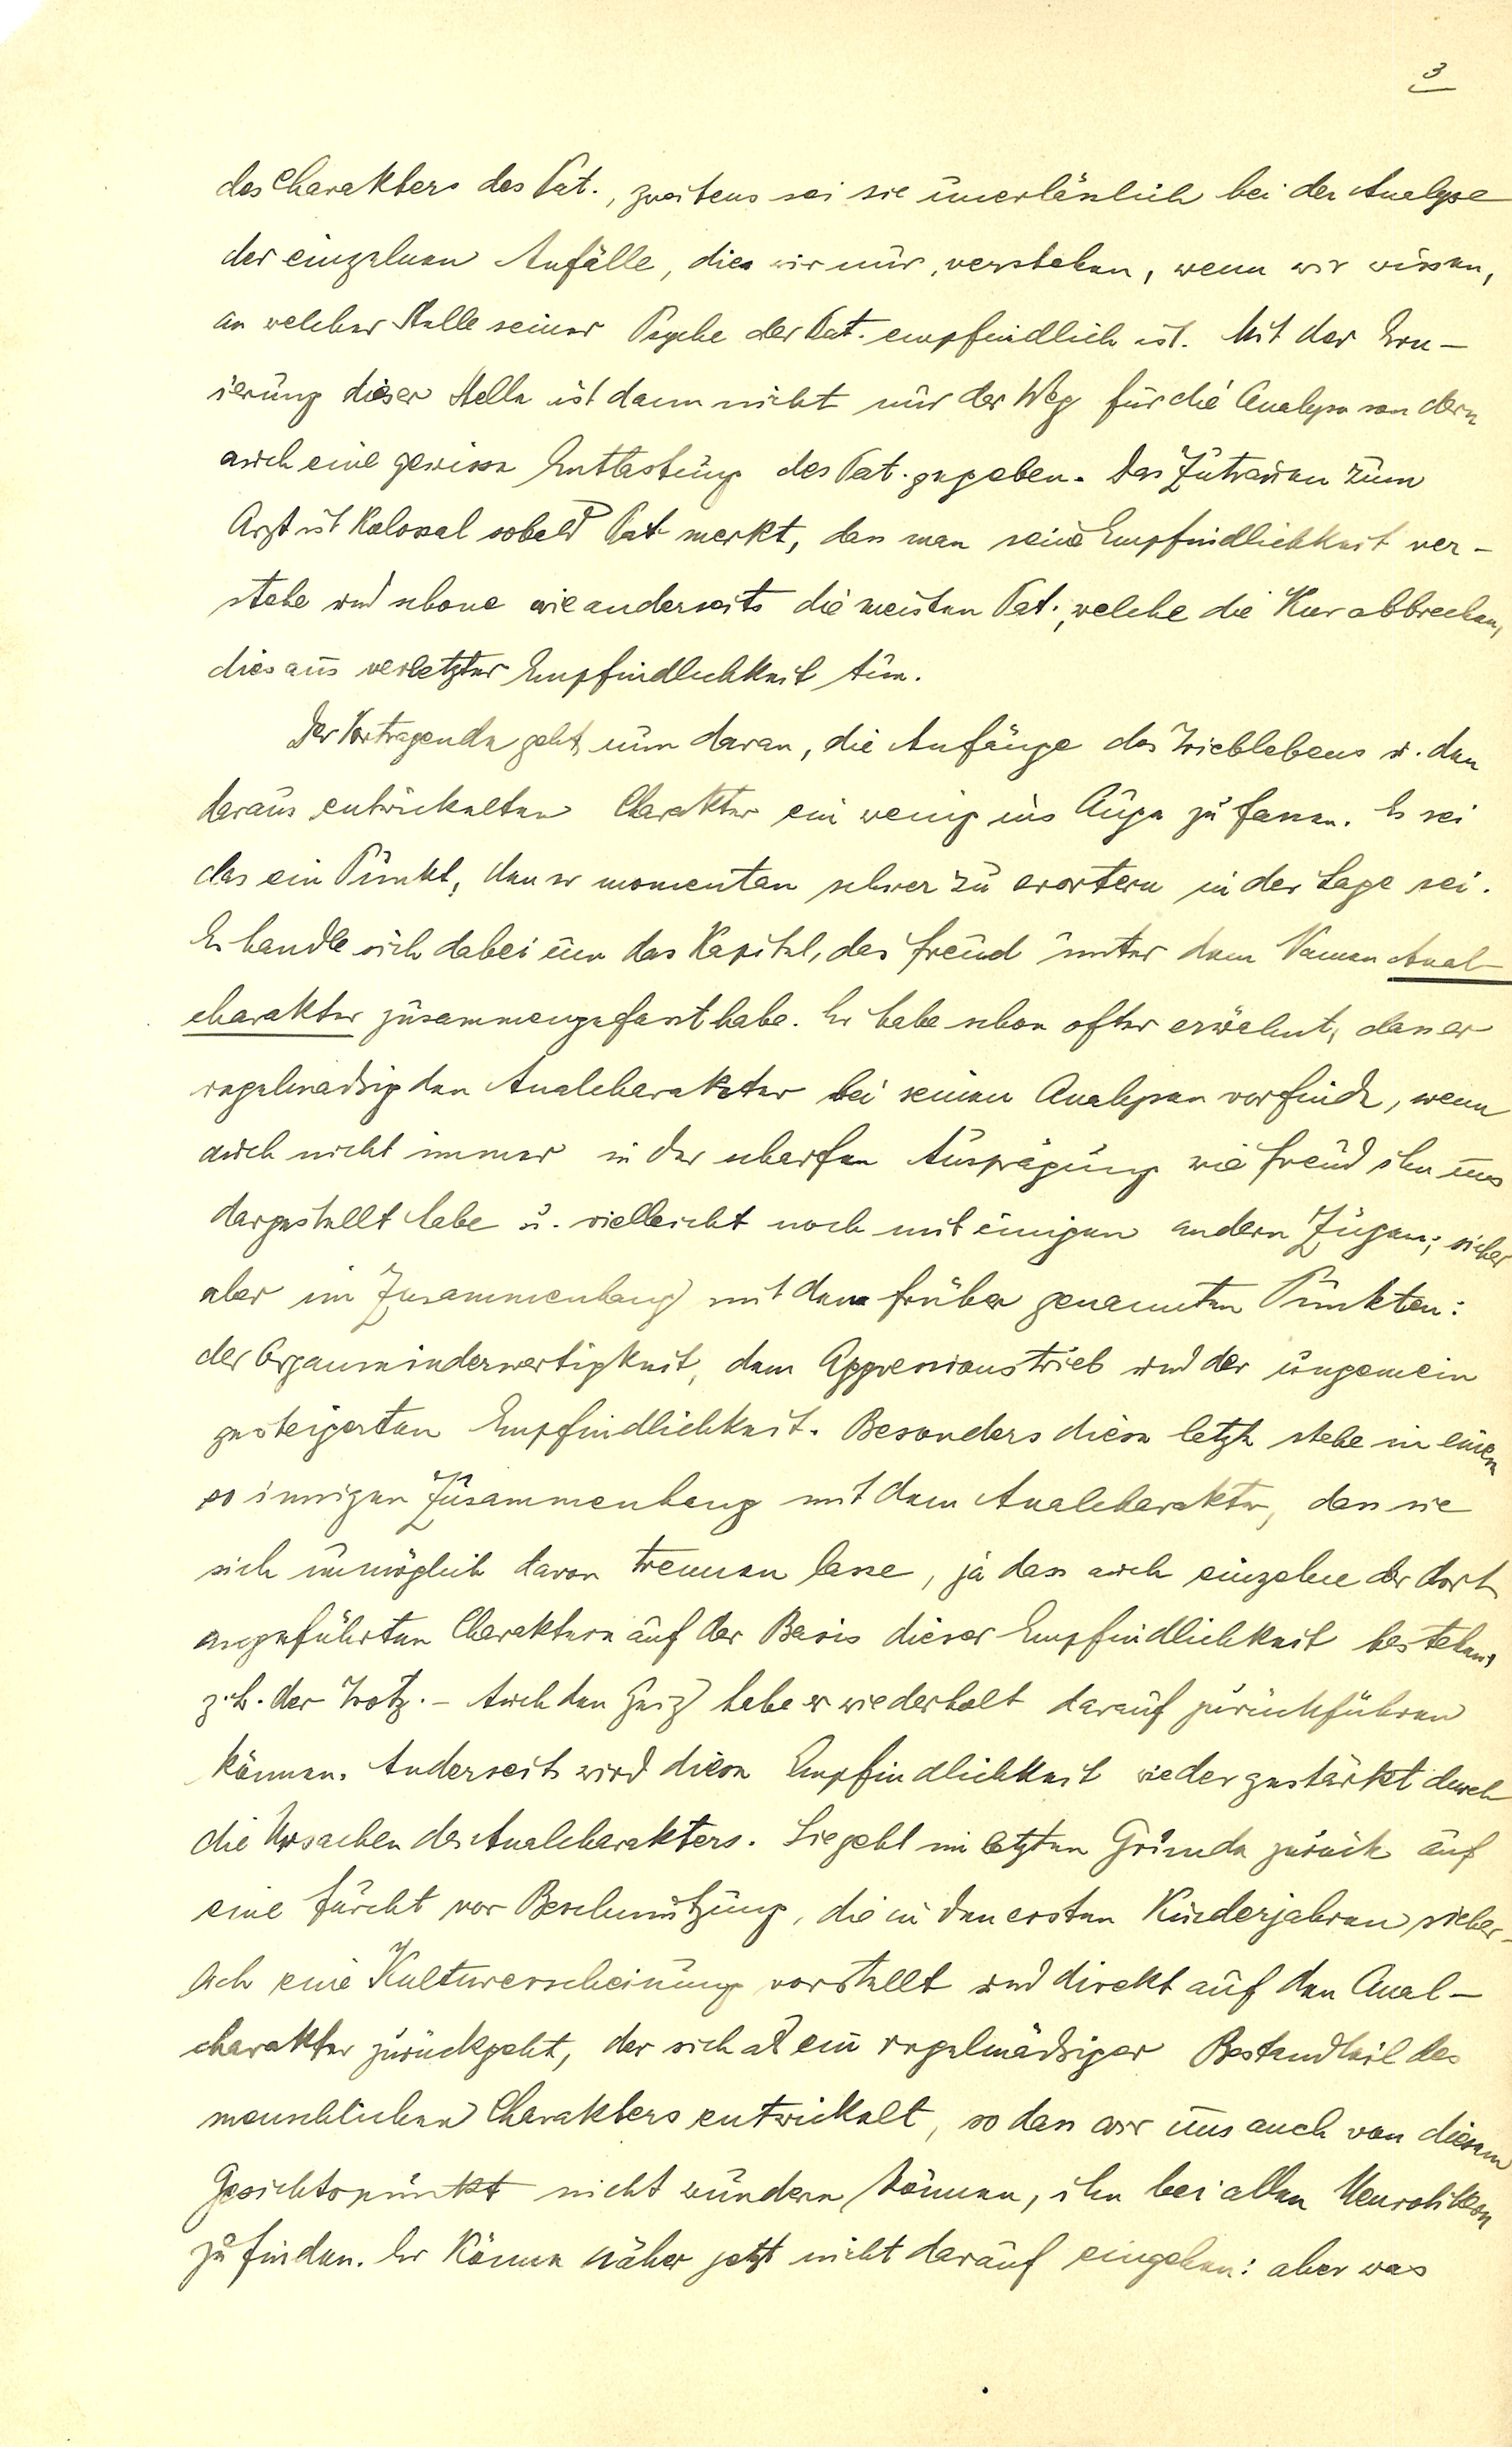 3
des Charakters des Pat., zweitens sei sie unerlässlich bei der Analyse
der einzelnen Anfälle, die wir nur verstehen, wenn wir wissen,
an welcher Stelle seiner Psyche der Pat. empfindlich ist. Mit der Eru-
ierung dieser Stelle ist dann nicht nur der Weg für die Analyse sondern
auch eine gewisse Entlastung des Pat. gegeben. Das Zutrauen zum
Arzt ist kolossal sobald Pat merkt, dass man seine Empfindlichkeit ver-
stehe und schone wie anderseits die meisten Pat., welche die Kur abbrechen,
dies aus verletzter Empfindlichkeit tun.
Der Vortragende geht nun daran, die Anfänge des Trieblebens u. den
daraus entwickelten Charakter ein wenig ins Auge zu fassen. Es sei
das ein Punkt, den er momentan schwer zu erörtern in der Lage sei.
Es handle sich dabei um das Kapitel, das Freud unter dem Namen Anal-
charakter zusammengefasst habe. Er habe schon öfter erwähnt, dass er
regelmässig den Analcharakter bei seinen Analysen vorfinde, wenn
auch nicht immer in der scharfen Ausprägung wie Freud ihn uns
dargestellt habe u. vielleicht noch mit einigen andern Zügen; sicher
aber im Zusammenhang mit den früher genannten Punkten:
der Organminderwertigkeit, dem Aggressionstrieb und der ungemein
gesteigerten Empfindlichkeit. Besonders diese letzte stehe in einem
so innigen Zusammenhang mit dem Analcharakter, dass sie
sich unmöglich davon trennen lasse, ja dass auch einzelne der dort
angeführten Charaktere auf der Basis dieser Empfindlichkeit bestehen,
z.B. der Trotz. – Auch den Geiz habe er wiederholt darauf zurückführen
können. Anderseits wird diese Empfindlichkeit wieder gestärkt durch
die Ursachen des Analcharakters. Sie geht im letzten Grunde zurück auf
eine Furcht vor Beschmutzung, die in den ersten Kinderjahren sicher-
lich eine Kulturerscheinung vorstellt und direkt auf den Anal-
charakter zurückgeht, der sich als ein regelmässiger Bestandteil des
menschlichen Charakters entwickelt, so dass wir uns auch von diesem
Gesichtspunkt nicht wundern können, ihn bei allen Neurotikern
zu finden. Er könne näher jetzt nicht darauf eingehen: aber was